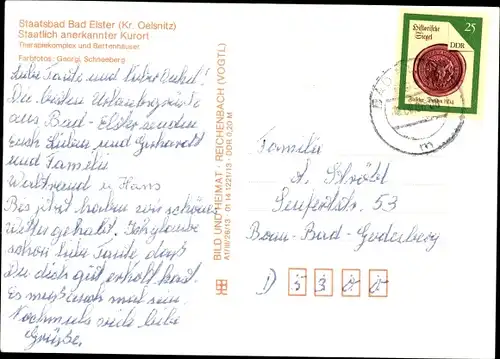 Staatsbad Bad Elster (Kr. Oelsnitz)
Staatlich anerkannter Kurort
Therapiekomplex und Bettenhäuser
Farbfotos: Georgi, Schneeberg
Liebe Tante und lieber Onkel!
Die besten Urlaubsgrüße
aus Bad-Elster senden
Euch Lieben und Gerhardt
und Familie
Waltraud u. Hans
Bis jetzt haben wir schönes
Wetter gehabt. Ich glaube
schon liebe Tante, daß
Du dich gut erholt hast.
Es muß auch mal sein.
Nochmals viele liebe
Grüße.
BILD UND HEIMAT · REICHENBACH (VOGTL)
A1/III/26/13 01 14 1221/13 · DDR 0,20 M
Historische
Siegel
25
DDR
BAD
m
Familie
A. Ströbl
Seufertstr. 53
Bonn-Bad-Godesberg
D 5300